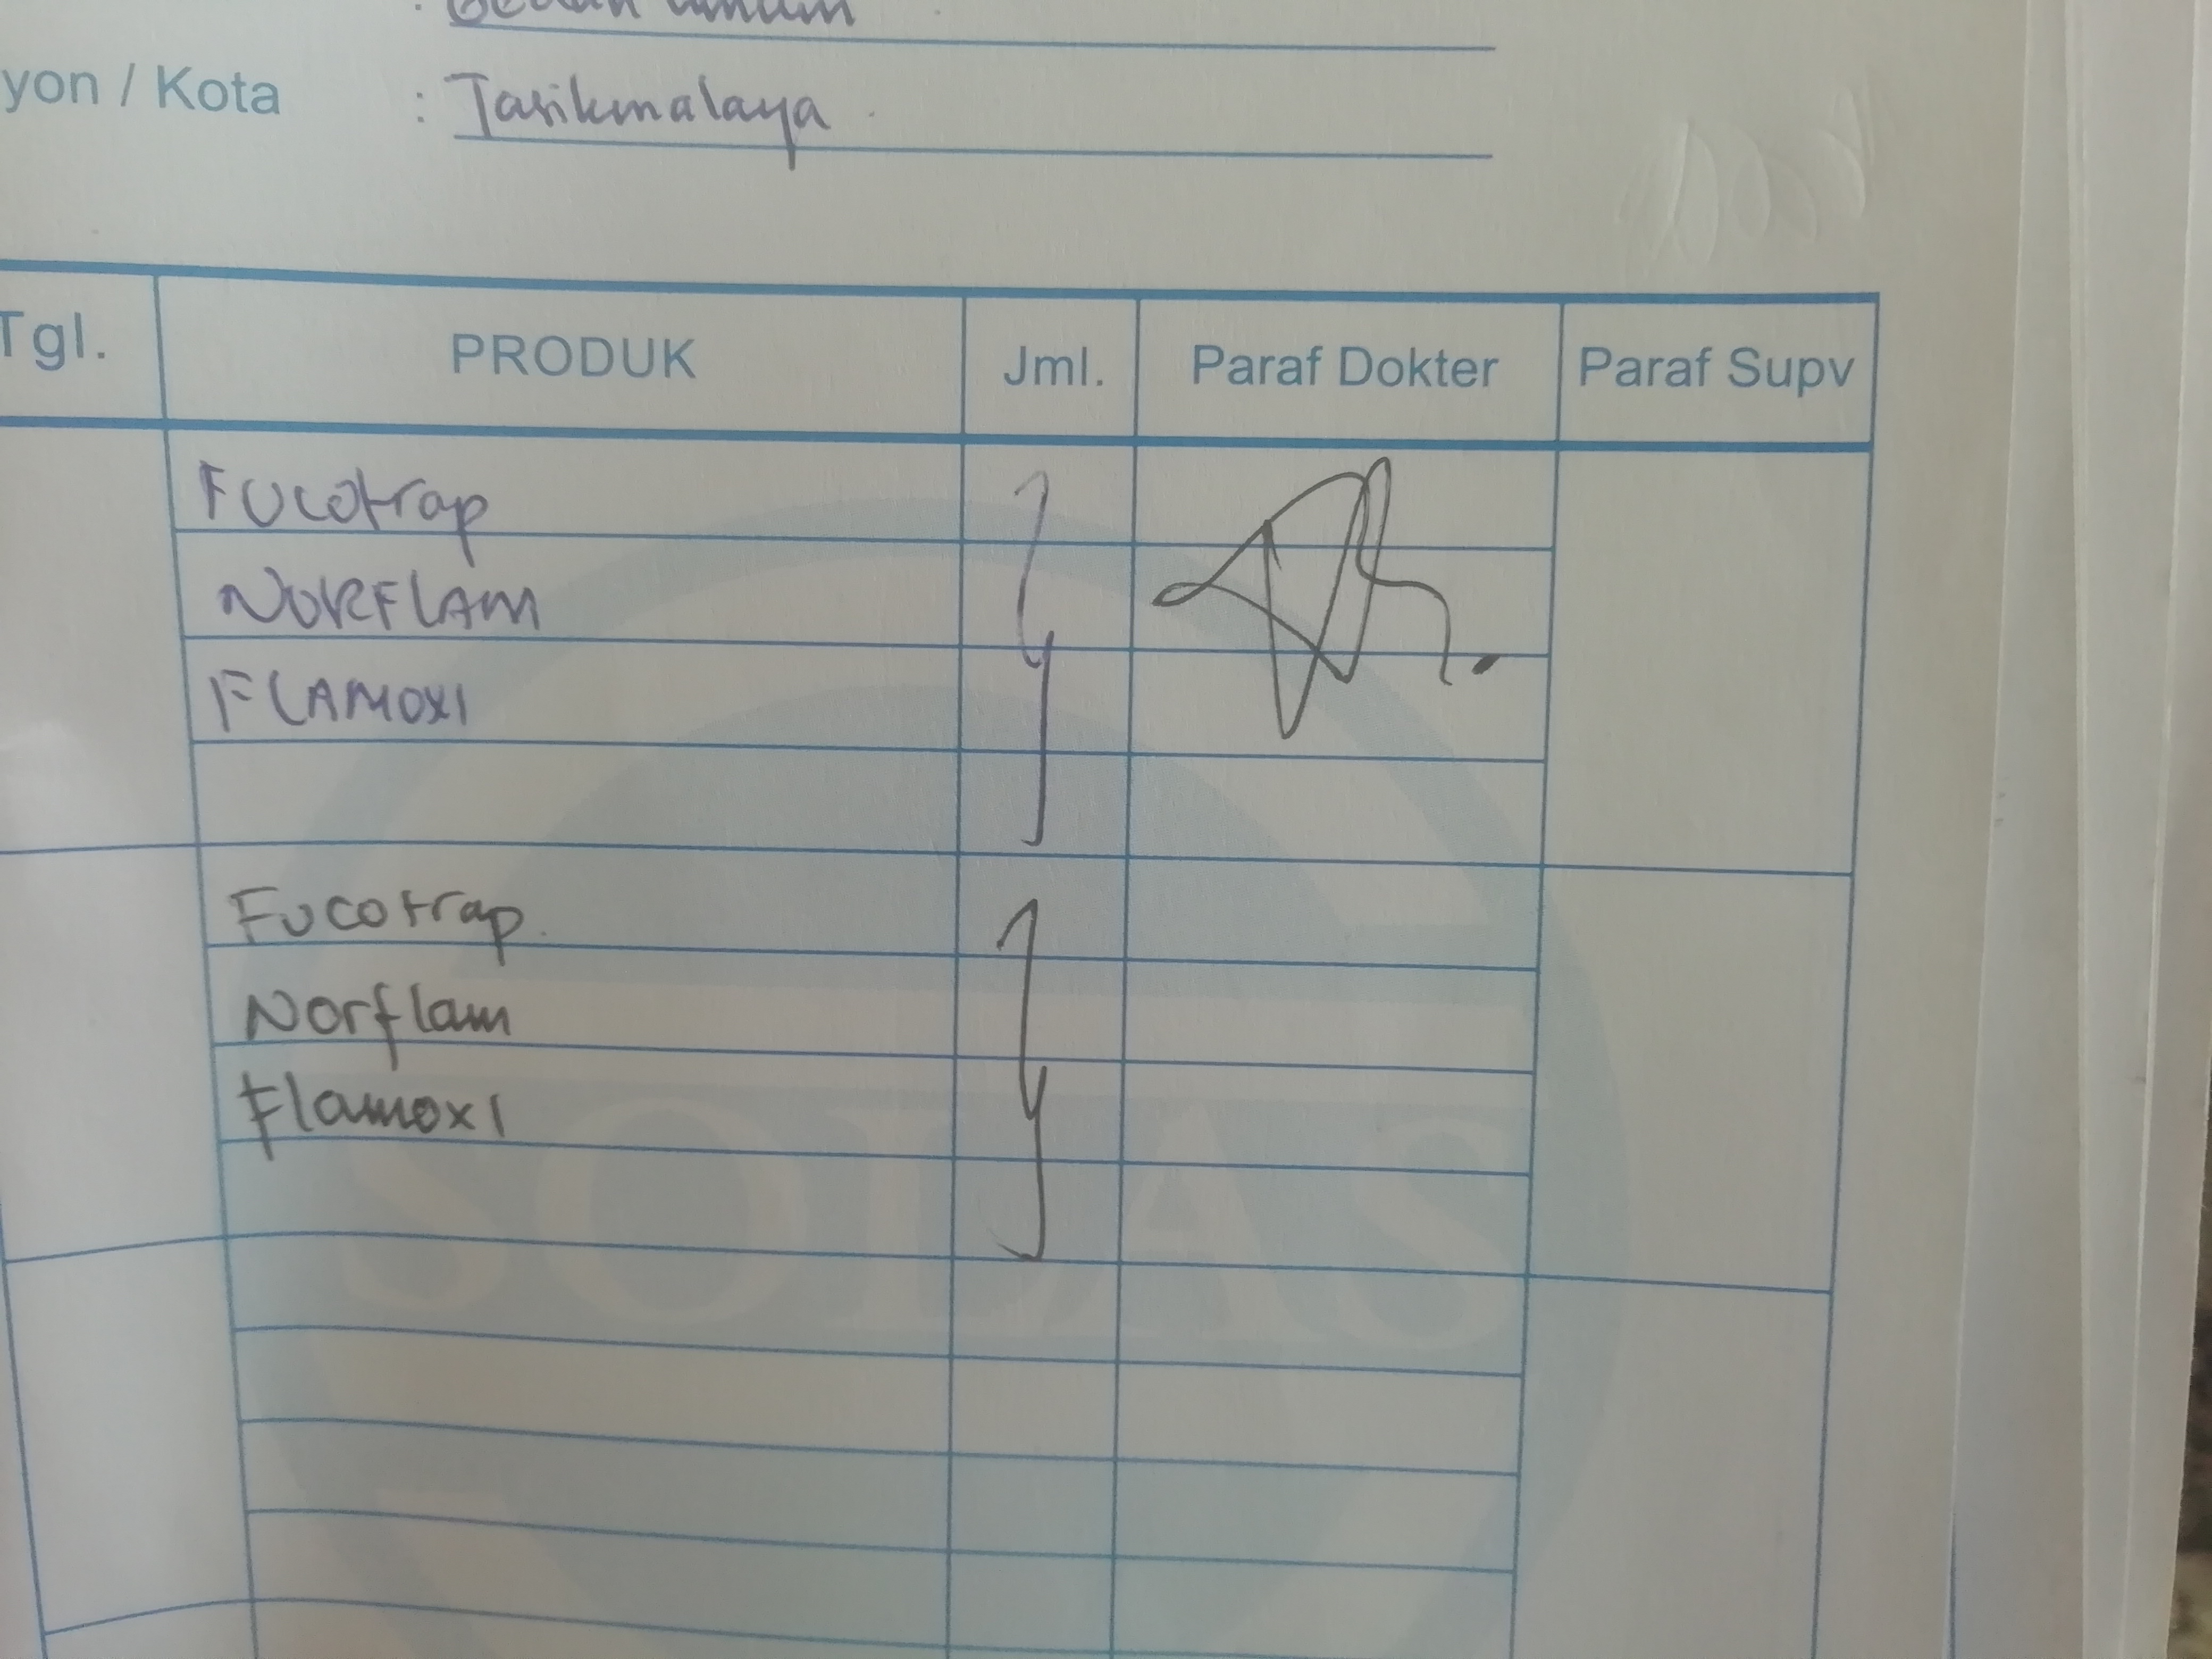 : Bedah Umum
yon / Kota : Tasikmalaya
Tgl. PRODUK Jml. Paraf Dokter Paraf Supv
Fucotrap
NORFLAM
FLAMOXI
Fucotrap.
Norflam
Flamoxi
SOLAS